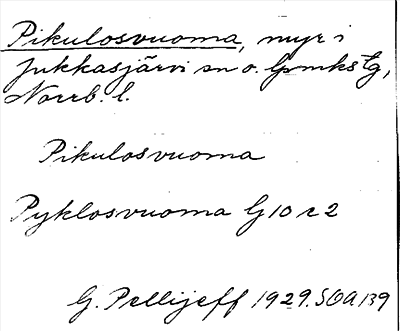 Pikulosvuoma, myr i
Jukkasjärvi sn o. lpmks tg,
Norrb. l.
Pikulosvuoma
Pyklosvuoma G 10 r 2
G. Pellijeff 1929. SOA. 139